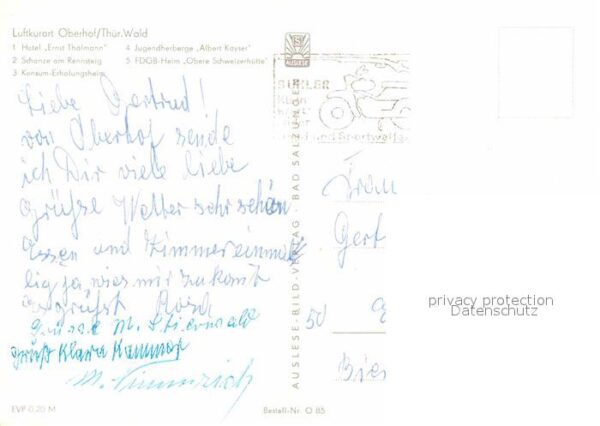 Luftkurort Oberhof/Thür. Wald
1 Hotel „Ernst Thälmann"
2 Schanze am Rennsteig
3 Konsum-Erholungsheim
4 Jugendherberge „Albert Kayser"
5 FDGB-Heim „Obere Schweizerhütte"
AUSLESE
SIMLER
und Sportwaffen
Liebe Gertrud!
von Oberhof sende
ich Dir viele liebe
Grüsse Wetter sehr schön
Essen und Zimmer einma
lig ja wies mir zukomt
es grüsst
Grüsse M. Stierwald
Grüßt Klara Kammer
M.
AUSLESE-BILD-VERLAG · BAD SALZUNGEN
Frau
Gert
50
privacy protection
Datenschutz
EVP 0,20 M
Bestell-Nr. O 85